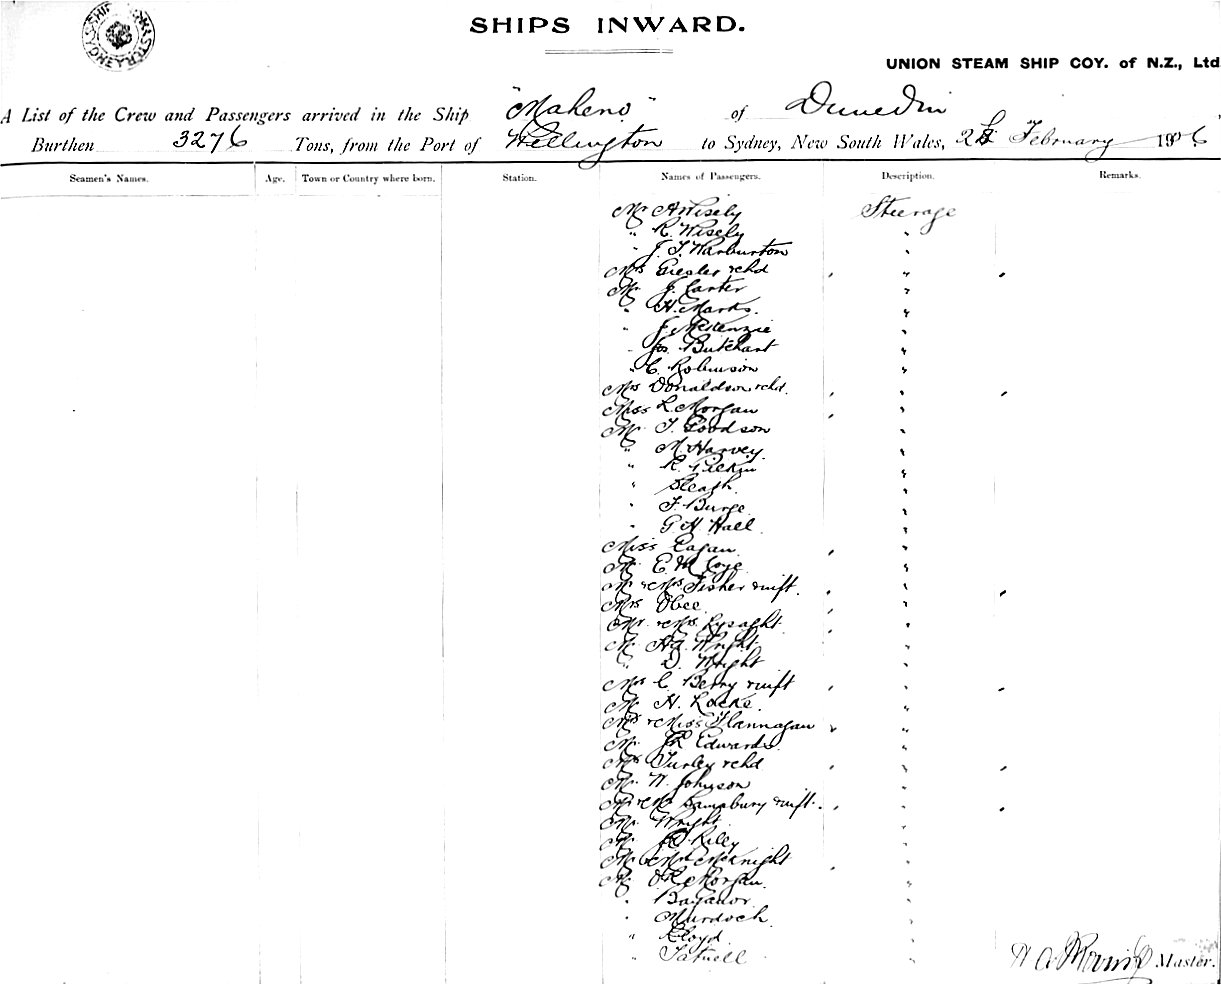 SHIPS INWARD.
UNION STEAM SHIP COY. of N.Z., Ltd
A List of the Crew and Passengers arrived in the Ship "Maheno" of Dunedin
Burthen 3276 Tons, from the Port of Wellington to Sydney, New South Wales, February 1906
Seamen's Names. Age. Town or Country where born. Station. Names of Passengers. Description. Remarks.
Mr A Wisely Steerage
" R. Wisely "
" J. T. Warburton "
Mrs Giesler & chd "
Mr J. Carter "
" H. Marks. "
" J. McKenzie "
" Jos Butchart "
" C. Robinson "
Mrs Donaldson & chd. "
Miss L. Morgan "
Mr T. Goodson "
" M. Harvey. "
" R. "
" Sleagh. "
" F. Burge "
" G H Hall "
Miss Eagan "
Mr E. M. Coye "
Mr & Mrs Fisher & inft. "
Mrs Obee "
Mr. & Mrs. Lysaght "
Mr Wright "
" D. Wright "
Mrs C. Berry & inft "
Mr H. Locke. "
Mrs & Miss Flannagan "
Mr. Edwards. "
Mrs Turley & chd "
Mr. W. Johnson "
Mr & Mrs Sainsbury & inft. "
Mr. Wright "
Mr. Riley "
Mr & Mrs McKnight "
Mr. Morgan. "
" Bayanor "
" Murdoch. "
" Lloyd "
" Tatnell "
Master.